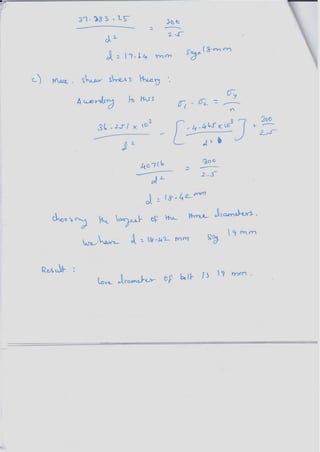 37.383.25 / d² = 300 / 2.5
d = 17.64 mm Say 18mm
c) Max. shear stress theory :
According to this σ₁ - σ₂ = σy / n
36.251 x 10³ / d² - [ -4.465 x 10³ / d² ] = 300 / 2.5
40716 / d² = 300 / 2.5
d = 18.42 mm
choosing the largest of the three diameters.
We have d = 18.42 mm Say 19mm
Result :
Core diameter of bolt is 19 mm.